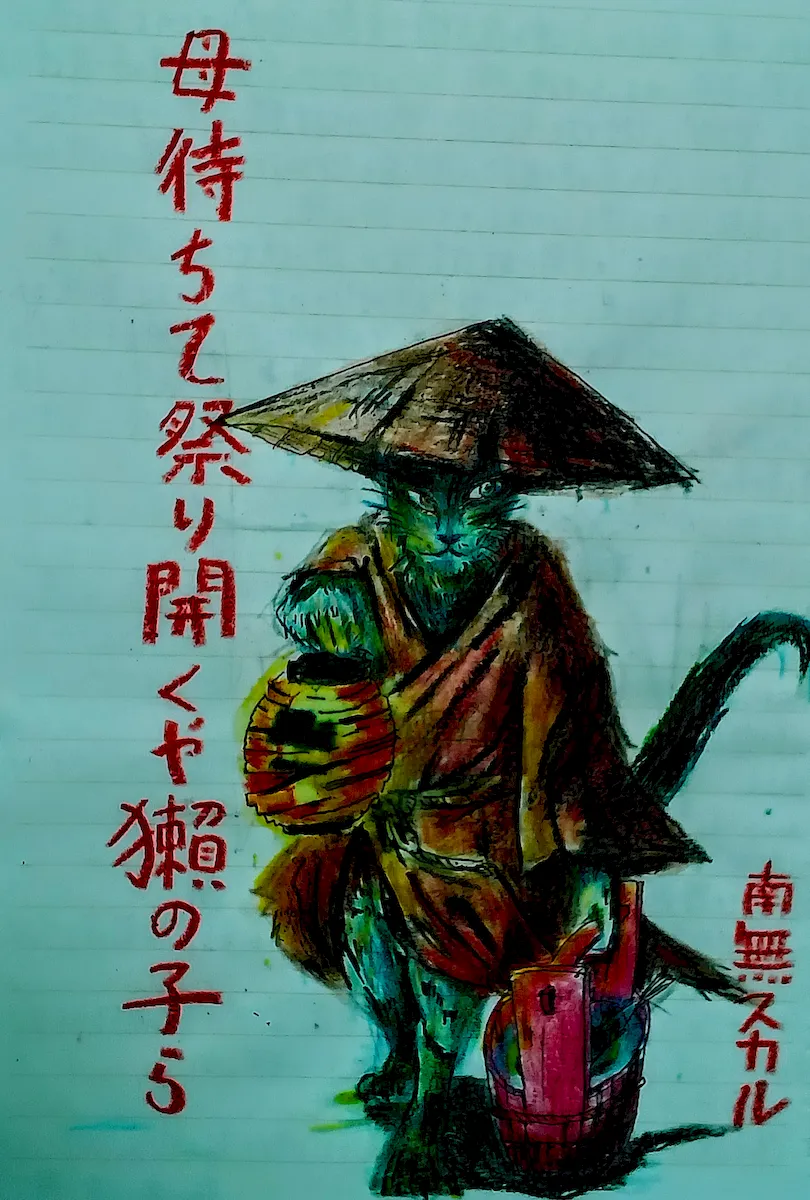 母待ちて祭り開くや獺の子ら
南無スカル